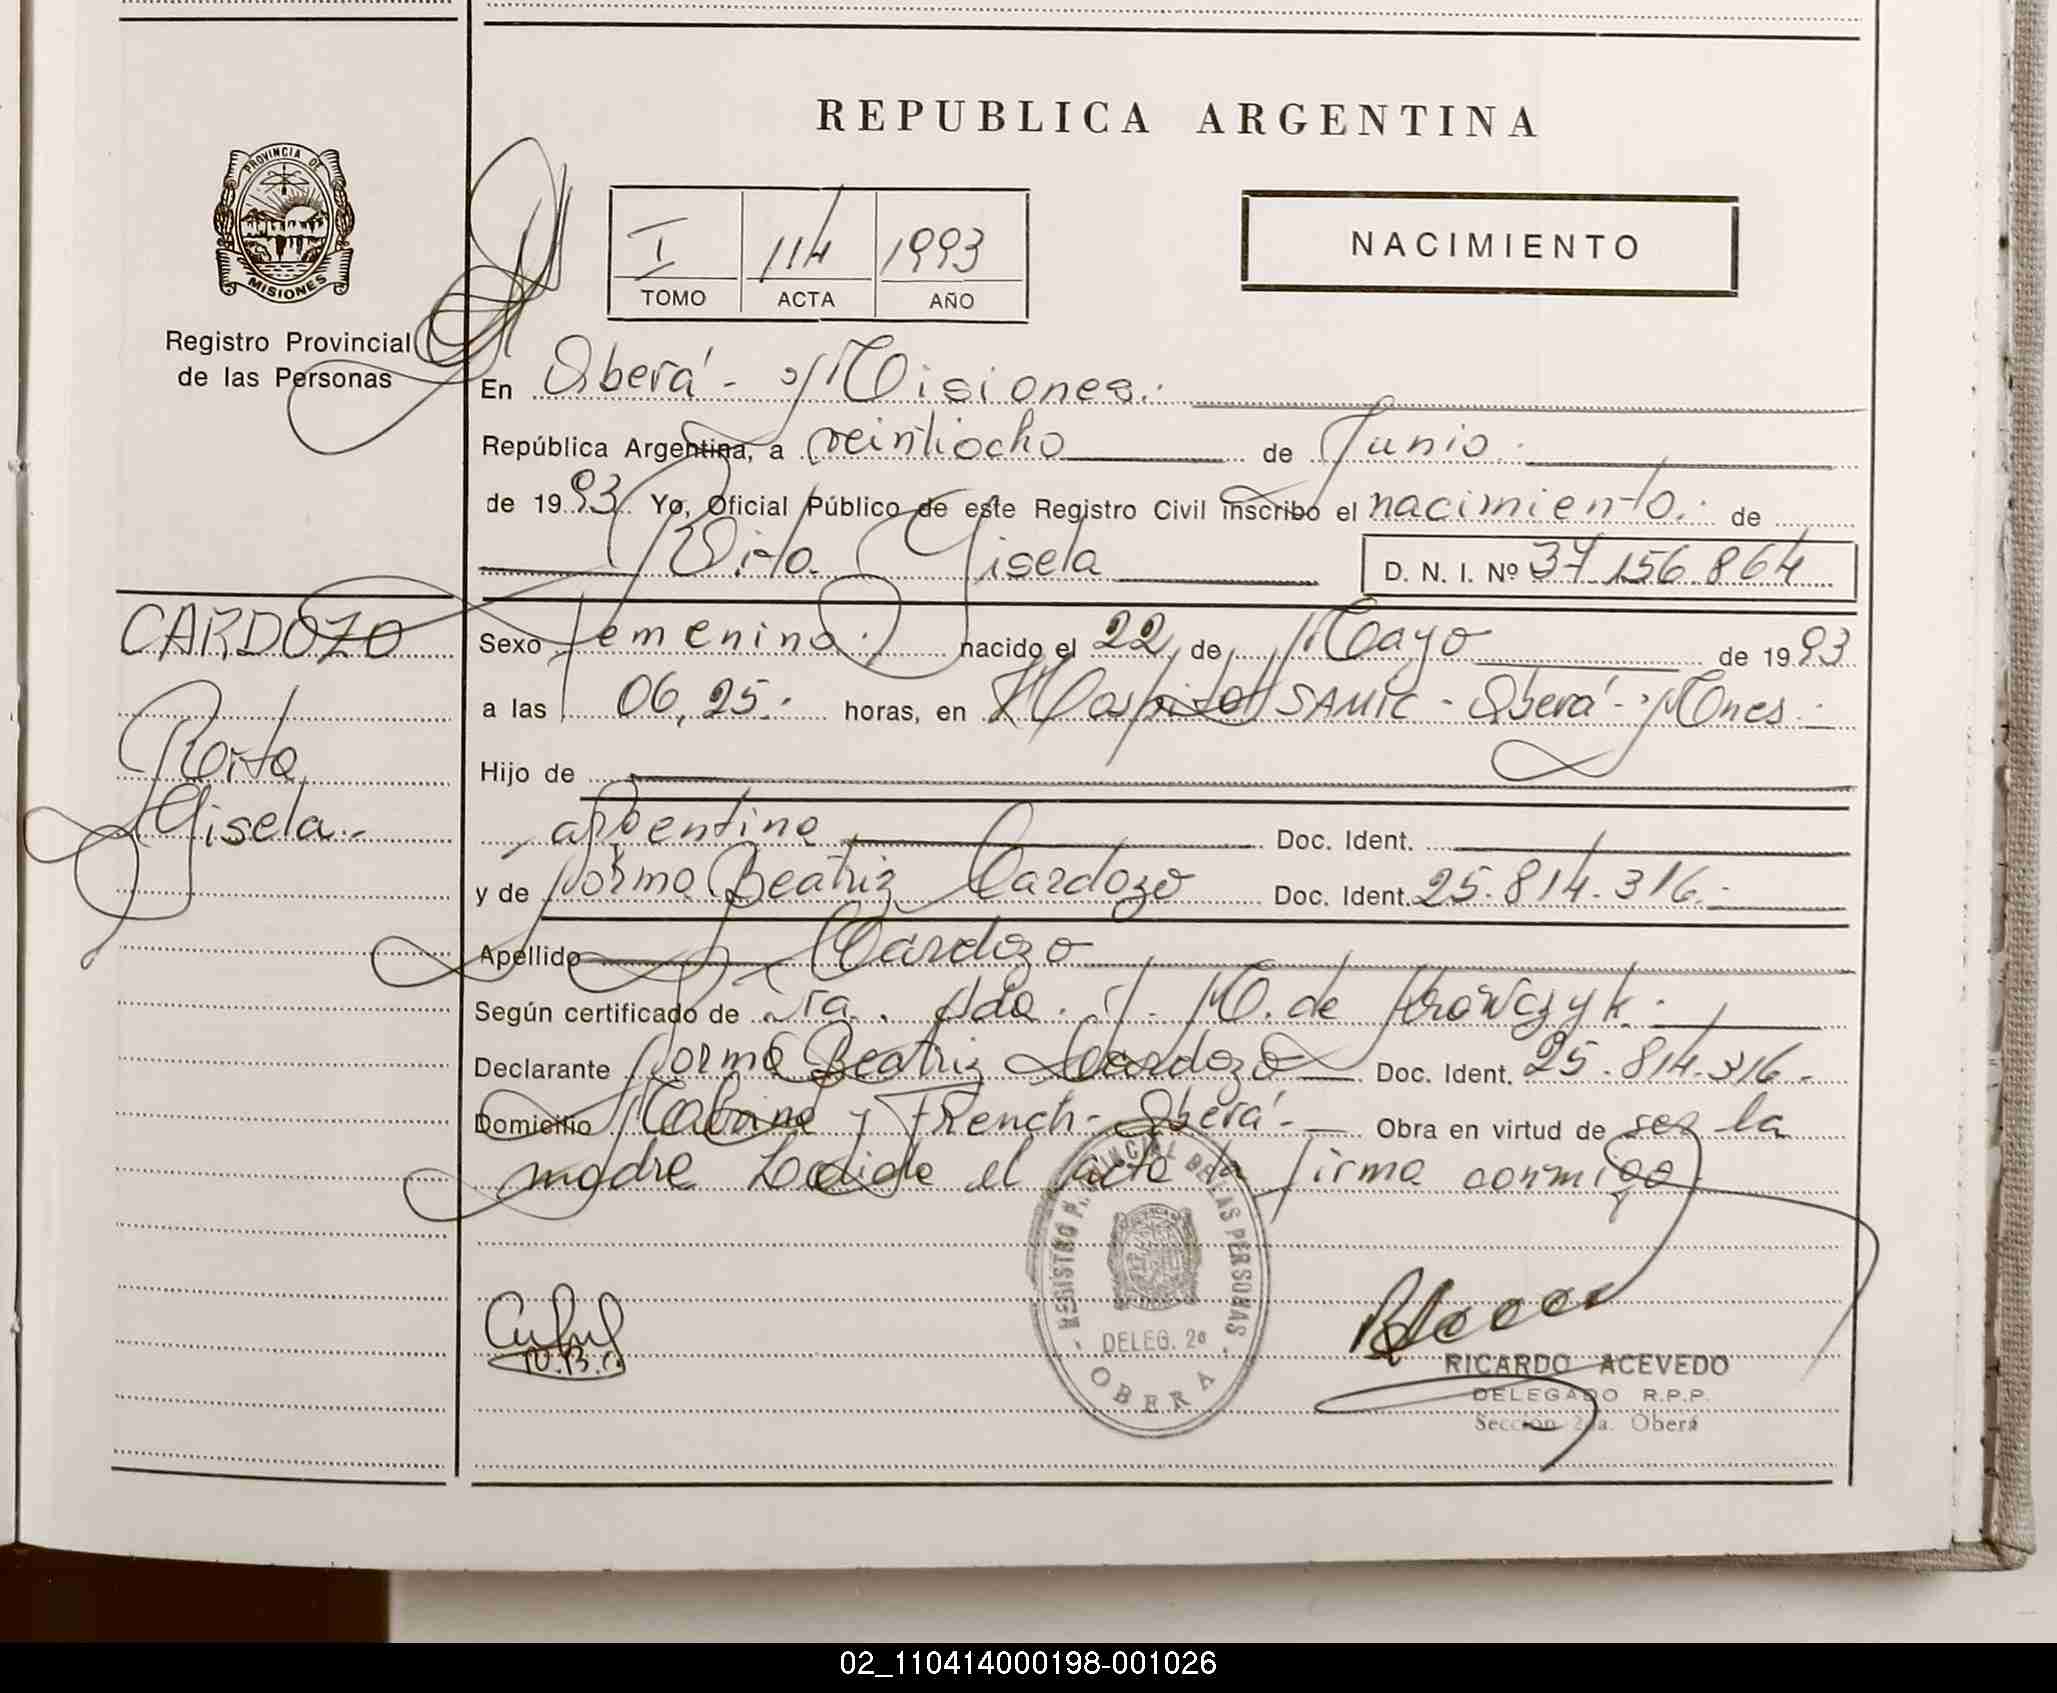 REPUBLICA ARGENTINA
PROVINCIA DE
MISIONES
Registro Provincial
de las Personas
I 114 1993
TOMO ACTA AÑO
NACIMIENTO
En Oberá - Misiones.
República Argentina, a veintiocho de Junio.
de 1993. Yo, Oficial Público de este Registro Civil inscribo el nacimiento. de
Rita Gisela D. N. I. Nº 37 156 864
CARDOZO
Rita
Gisela.-
Sexo femenino. nacido el 22, de Mayo de 1993
a las 06,25. horas, en Hospital SAMIC - Oberá - Mnes.
Hijo de
argentina Doc. Ident.
y de Norma Beatriz Cardozo Doc. Ident. 25.814.316.-
Apellido Cardozo
Según certificado de Dra. Ada. M. de Krawczyk.
Declarante Norma Beatriz Cardozo Doc. Ident. 25.814.316.-
Domicilio y French - Oberá - Obra en virtud de ser la
madre Leída el acta la firma conmigo
REGISTRO PROVINCIAL DE LAS PERSONAS
DELEG. 2a
OBERA
N.B.C.
RICARDO ACEVEDO
DELEGADO R.P.P.
Sección 2da. Oberá
02_110414000198-001026